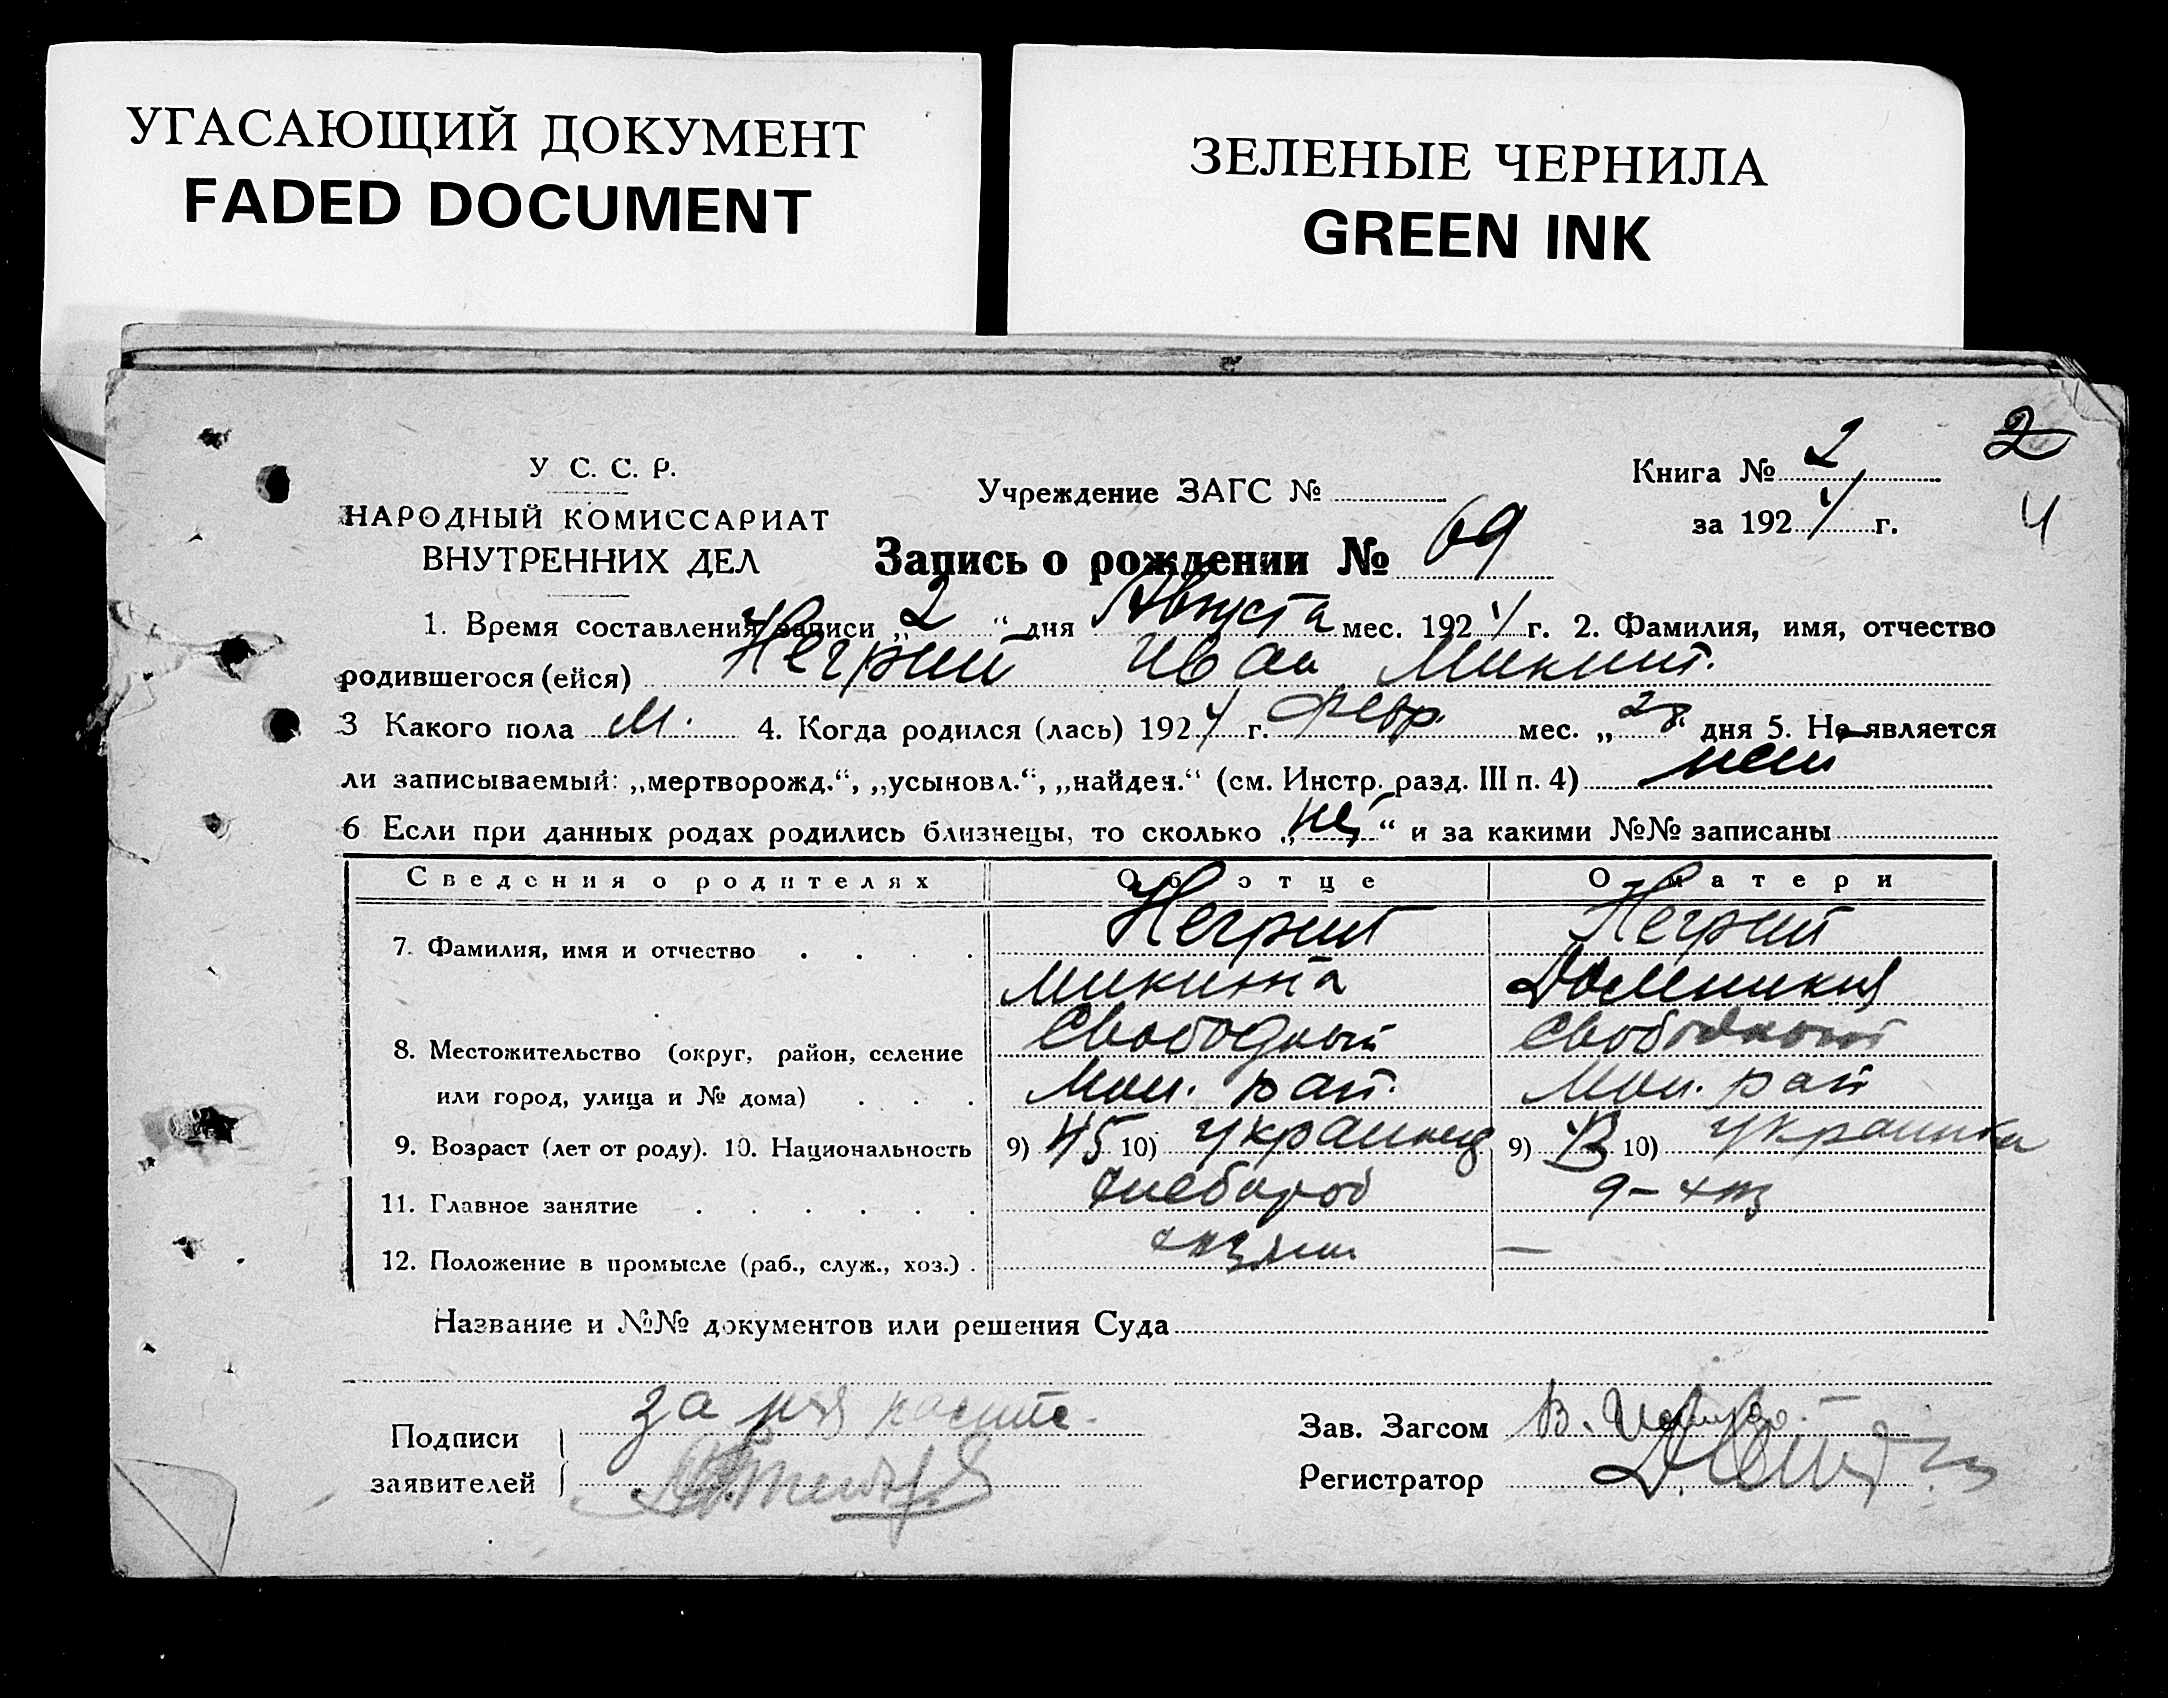 УГАСАЮЩИЙ ДОКУМЕНТ
FADED DOCUMENT
ЗЕЛЕНЫЕ ЧЕРНИЛА
GREEN INK
2
4
У С. С. Р.
НАРОДНЫЙ КОМИССАРИАТ
ВНУТРЕННИХ ДЕЛ
Учреждение ЗАГС №
Книга № 2
за 1924 г.
Запись о рождении № 69
1. Время составления записи „2“ дня Августа мес. 1924 г. 2. Фамилия, имя, отчество
родившегося (ейся) Негрий Иван Микит.
3 Какого пола м. 4. Когда родился (лась) 1924 г. февр. мес. „28. дня 5. Не является
ли записываемый: „мертворожд.“, „усыновл.“, „найден.“ (см. Инстр. разд. III п. 4) нет
6 Если при данных родах родились близнецы, то сколько „нет“ и за какими №№ записаны
Сведения о родителях Об отце О матери
7. Фамилия, имя и отчество Негрий Негрий
Микита Домникия
8. Местожительство (округ, район, селение Свободный Свободный
или город, улица и № дома) Мои. рай. Мои. рай
9. Возраст (лет от роду). 10. Национальность 9) 45 10) украинец 9) 43 10) украинка
11. Главное занятие хлебороб
12. Положение в промысле (раб., служ., хоз.) —
Название и №№ документов или решения Суда
Подписи за
заявителей
Зав. Загсом В.
Регистратор